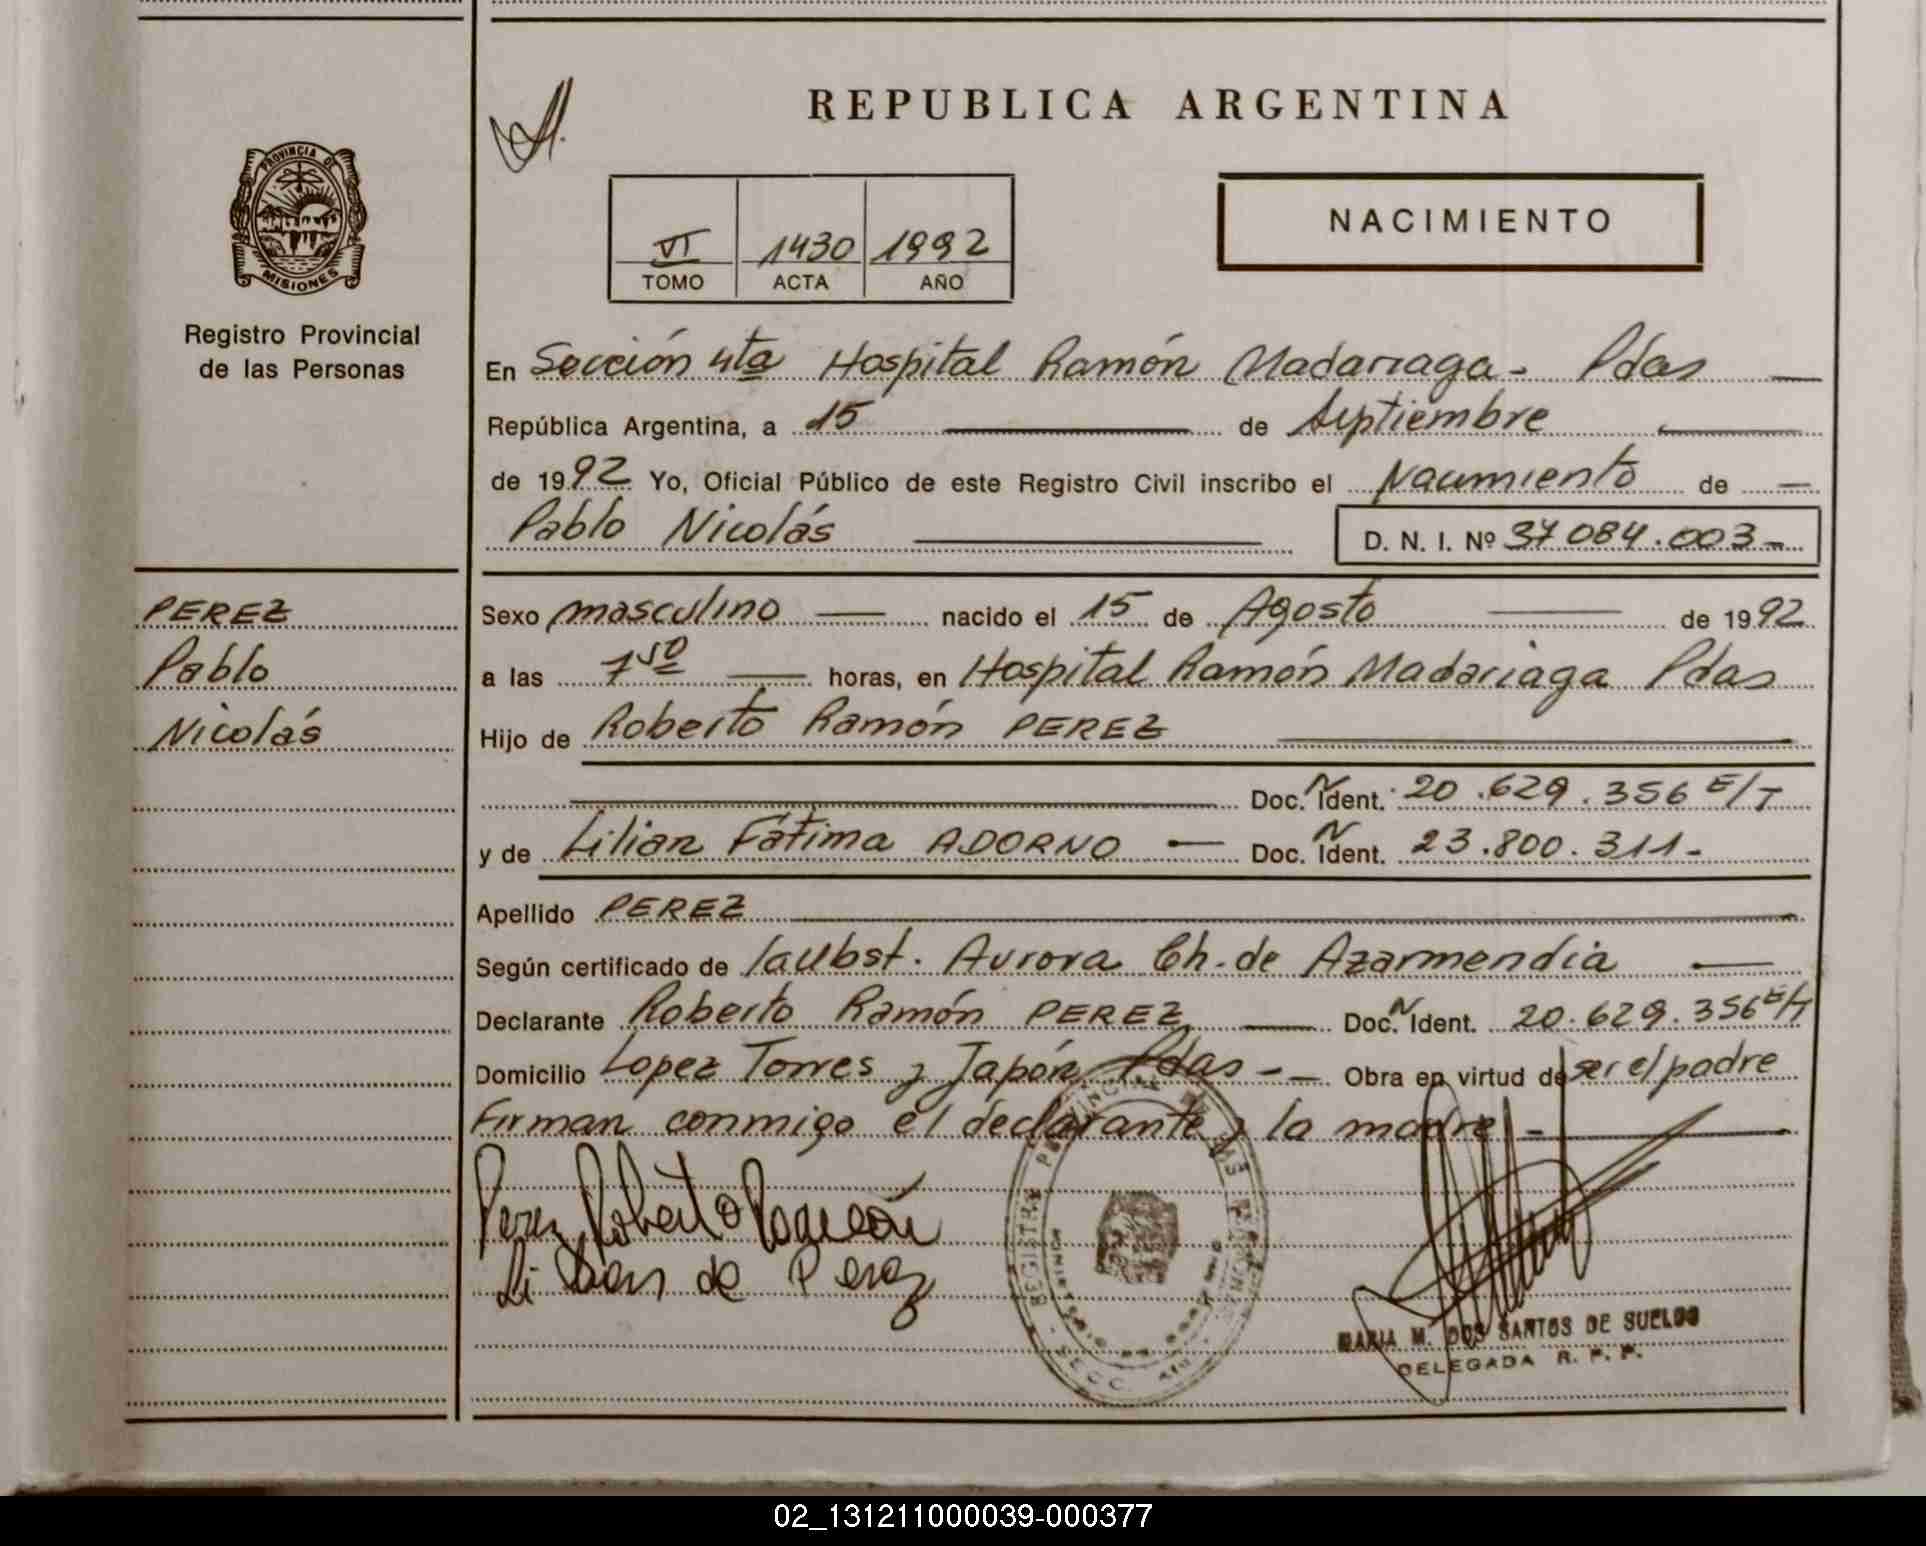 REPUBLICA ARGENTINA
PROVINCIA DE
MISIONES
Registro Provincial
de las Personas
VI 1430 1992
TOMO ACTA AÑO
NACIMIENTO
En Sección 4ta Hospital Ramón Madariaga - Pdas
República Argentina, a 15 de Septiembre
de 1992 Yo, Oficial Público de este Registro Civil inscribo el Nacimiento de
Pablo Nicolás D. N. I. Nº 37 084.003-
PEREZ
Pablo
Nicolás
Sexo masculino nacido el 15 de Agosto de 1992
a las 7 50 horas, en Hospital Ramón Madariaga Pdas
Hijo de Roberto Ramón PEREZ
Doc. N Ident. 20.629.356 E/T
y de Lilian Fátima ADORNO Doc. N Ident. 23.800.311-
Apellido PEREZ
Según certificado de la Obst. Aurora Ch. de Azarmendia
Declarante Roberto Ramón PEREZ Doc. N Ident. 20.629.356 E/T
Domicilio Lopez Torres y Japón Pdas - Obra en virtud de ser el padre
Firman conmigo el declarante y la madre -
Perez Roberto Ramón
Lilian de Perez
MARIA M. DOS SANTOS DE SUELDO
DELEGADA R. P. P.
02_131211000039-000377